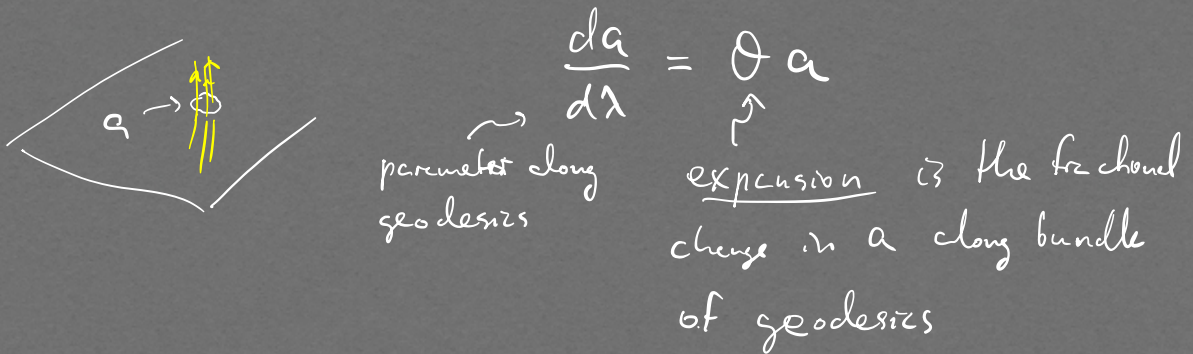 a
da/dλ = θ a
parameter along
geodesics
expansion is the fractional
change in a along bundle
of geodesics